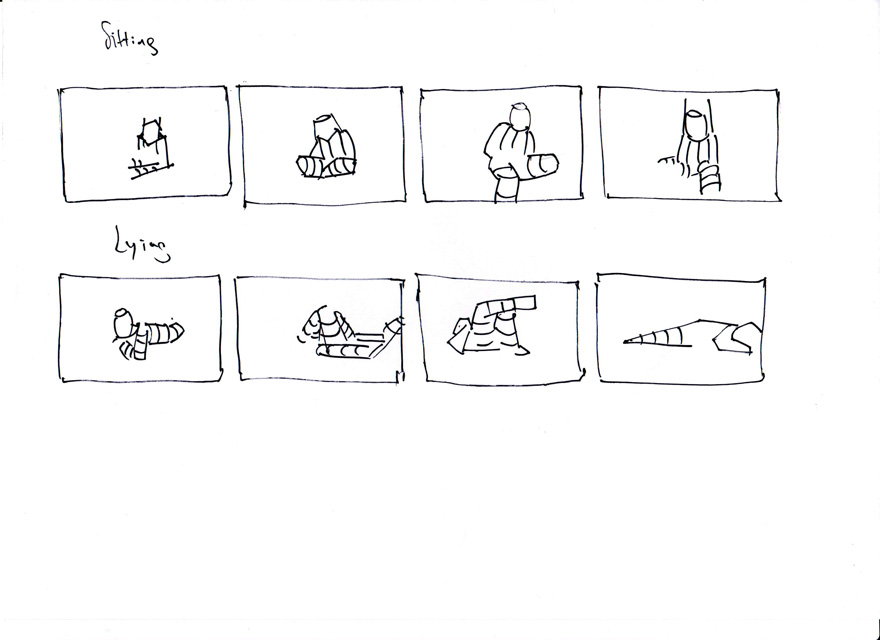 Sitting
Lying